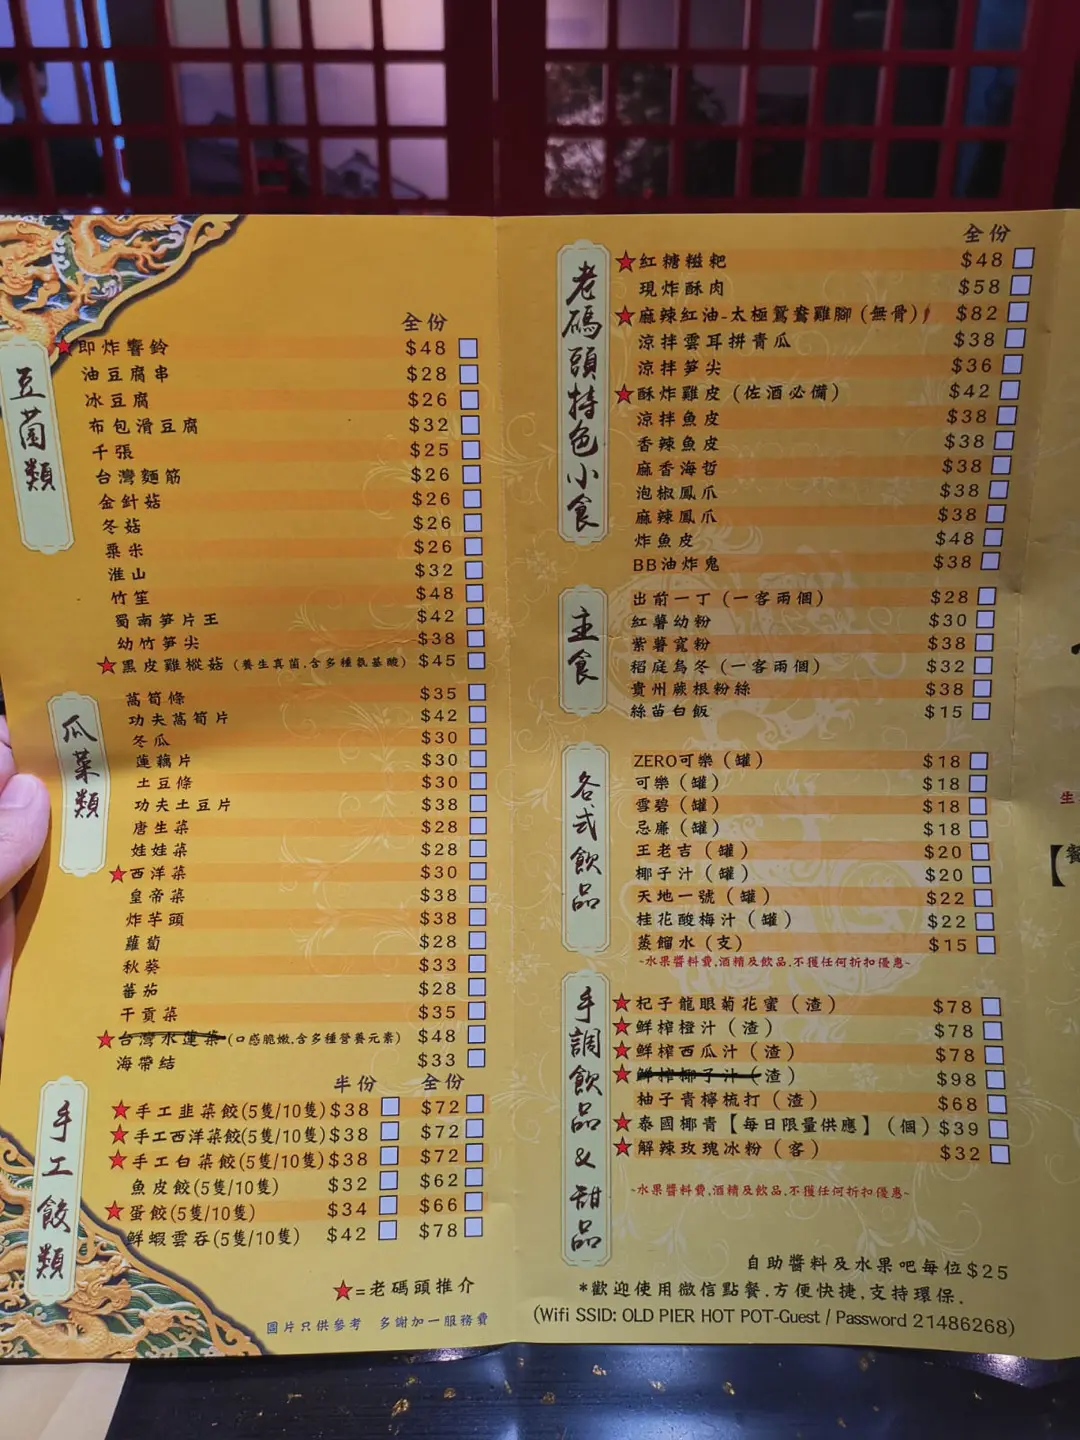 豆菌類
全份
★即炸響鈴 $48
油豆腐串 $28
冰豆腐 $26
布包滑豆腐 $32
千張 $25
台灣麵筋 $26
金針菇 $26
冬菇 $26
粟米 $26
淮山 $32
竹笙 $48
蜀南笋片王 $42
幼竹笋尖 $38
★黑皮雞樅菇 (養生真菌,含多種氨基酸) $45
瓜菜類
萵筍條 $35
功夫萵筍片 $42
冬瓜 $30
蓮藕片 $30
土豆條 $30
功夫土豆片 $38
唐生菜 $28
娃娃菜 $28
★西洋菜 $30
皇帝菜 $38
炸芋頭 $38
蘿蔔 $28
秋葵 $33
蕃茄 $28
干貢菜 $35
★台灣水蓮菜 (口感脆嫩,含多種營養元素) $48
海帶結 $33
手工餃類
半份 全份
★手工韭菜餃(5隻/10隻) $38 $72
★手工西洋菜餃(5隻/10隻) $38 $72
★手工白菜餃(5隻/10隻) $38 $72
魚皮餃(5隻/10隻) $32 $62
★蛋餃(5隻/10隻) $34 $66
鮮蝦雲吞(5隻/10隻) $42 $78
★=老碼頭推介
圖片只供參考 多謝加一服務費
老碼頭特色小食
全份
★紅糖糍粑 $48
現炸酥肉 $58
★麻辣紅油-太極鴛鴦雞腳 (無骨) $82
涼拌雲耳拼青瓜 $38
涼拌笋尖 $36
★酥炸雞皮 (佐酒必備) $42
涼拌魚皮 $38
香辣魚皮 $38
麻香海哲 $38
泡椒鳳爪 $38
麻辣鳳爪 $38
炸魚皮 $48
BB油炸鬼 $38
主食
出前一丁 (一客兩個) $28
紅薯幼粉 $30
紫薯寬粉 $38
稻庭烏冬 (一客兩個) $32
貴州蕨根粉絲 $38
絲苗白飯 $15
各式飲品
ZERO可樂 (罐) $18
可樂 (罐) $18
雪碧 (罐) $18
忌廉 (罐) $18
王老吉 (罐) $20
椰子汁 (罐) $20
天地一號 (罐) $22
桂花酸梅汁 (罐) $22
蒸餾水 (支) $15
~水果醬料費,酒精及飲品,不獲任何折扣優惠~
手調飲品&甜品
★杞子龍眼菊花蜜 (渣) $78
★鮮榨橙汁 (渣) $78
★鮮榨西瓜汁 (渣) $78
★鮮榨椰子汁 (渣) $98
柚子青檸梳打 (渣) $68
★泰國椰青【每日限量供應】 (個) $39
★解辣玫瑰冰粉 (客) $32
~水果醬料費,酒精及飲品,不獲任何折扣優惠~
自助醬料及水果吧每位$25
*歡迎使用微信點餐,方便快捷,支持環保.
(Wifi SSID: OLD PIER HOT POT-Guest / Password 21486268)
生
【餐